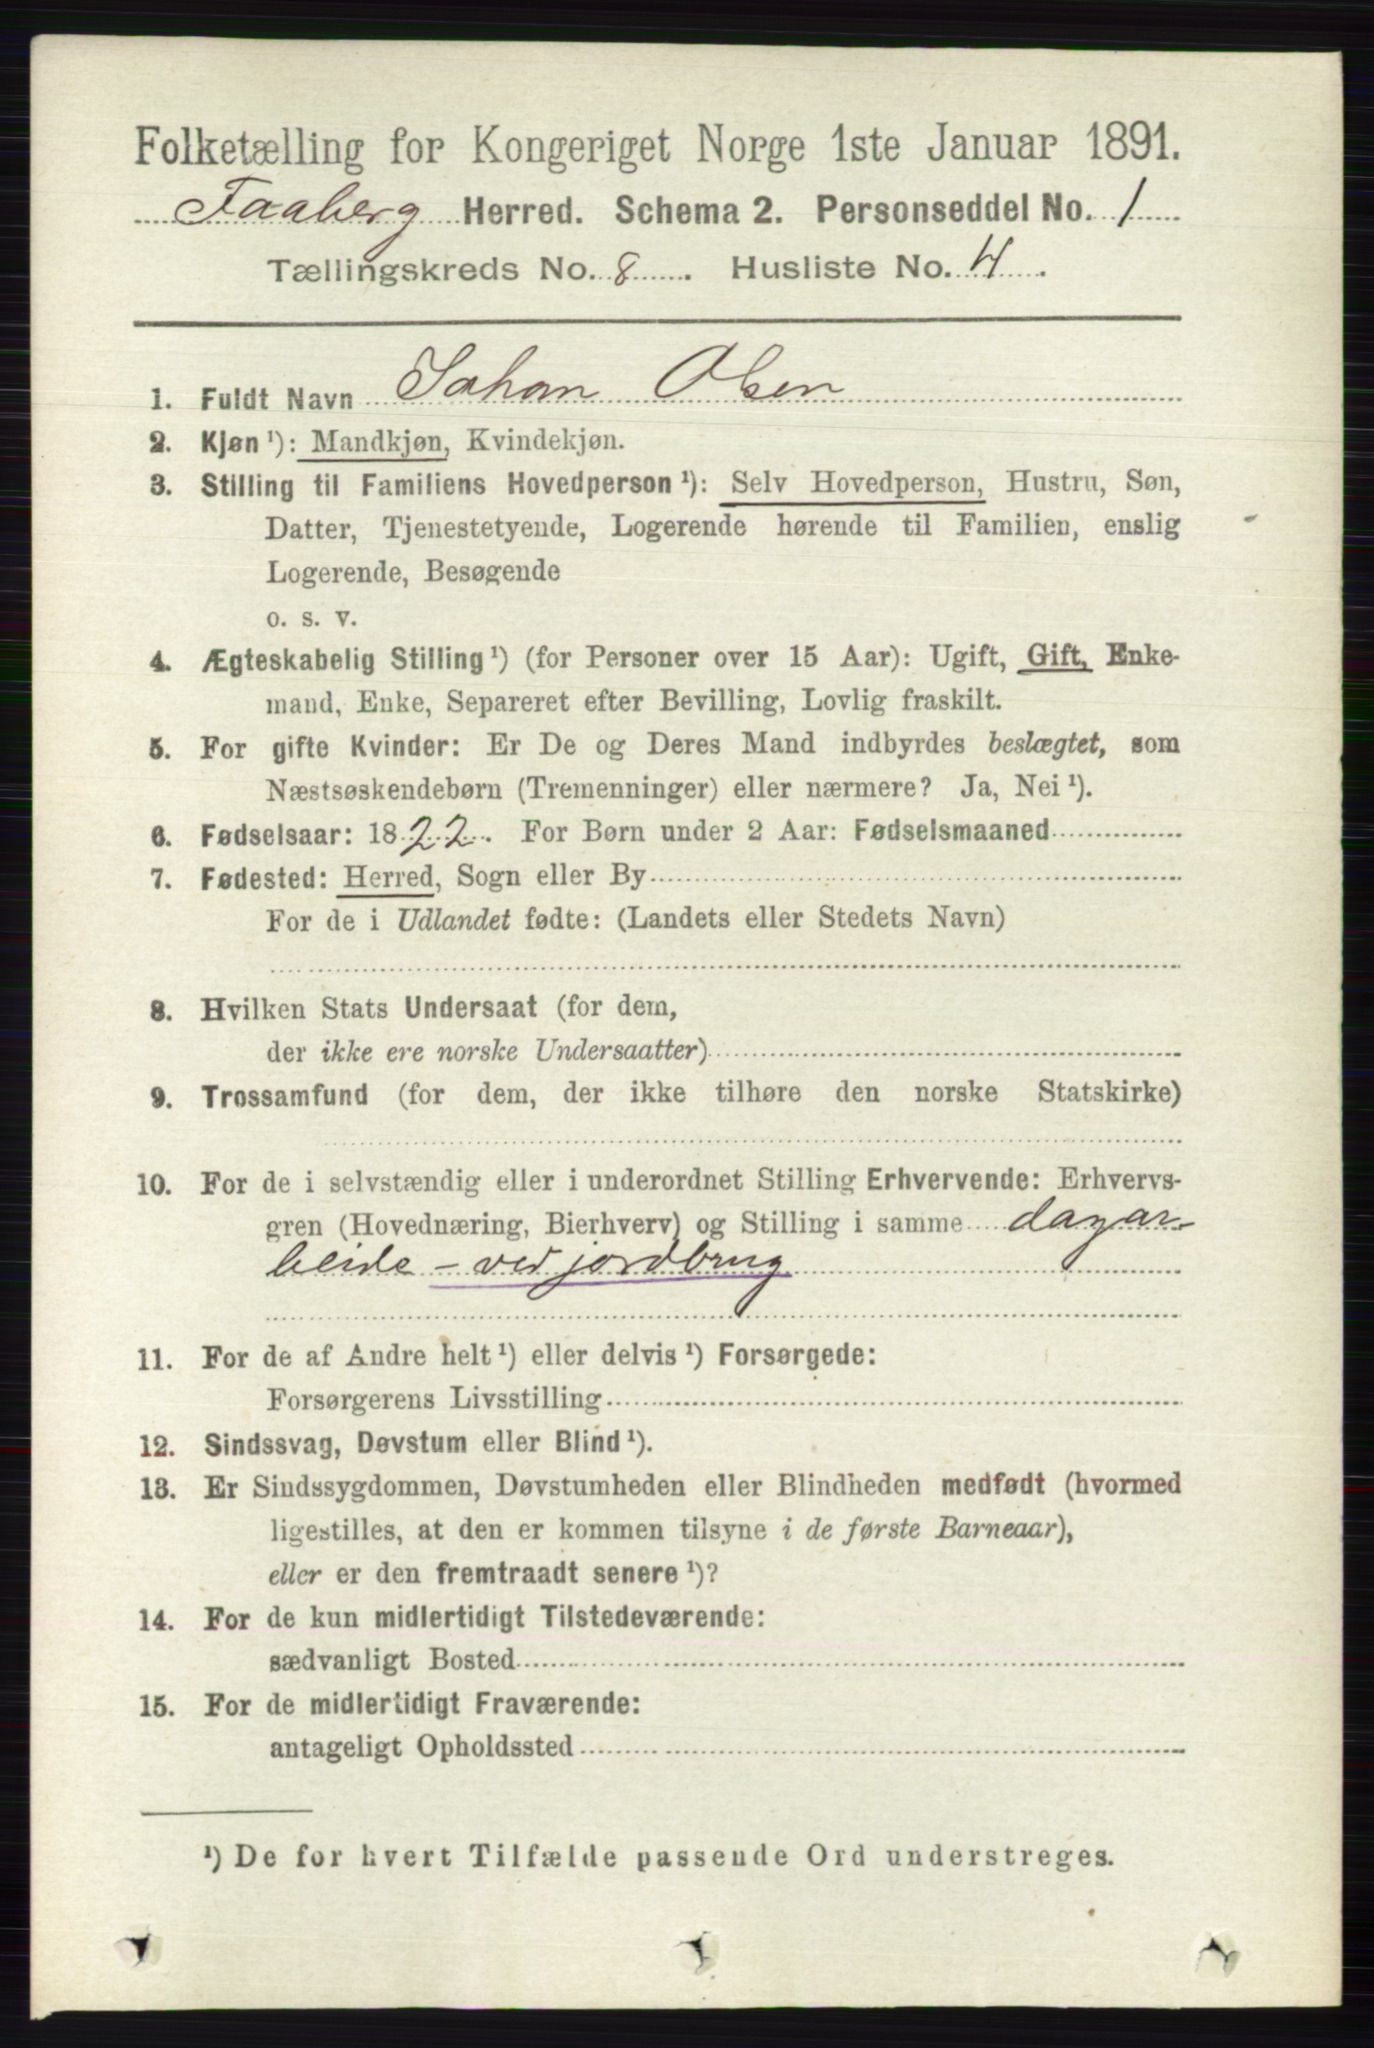 Folketælling for Kongeriget Norge 1ste Januar 1891.
Faaberg Herred. Schema 2. Personseddel No. 1
Tællingskreds No. 8. Husliste No. 4.
1. Fuldt Navn Johan Olsen
2. Kjøn ¹): Mandkjøn, Kvindekjøn.
3. Stilling til Familiens Hovedperson ¹): Selv Hovedperson, Hustru, Søn,
Datter, Tjenestetyende, Logerende hørende til Familien, enslig
Logerende, Besøgende
o. s. v.
4. Ægteskabelig Stilling ¹) (for Personer over 15 Aar): Ugift, Gift, Enke-
mand, Enke, Separeret efter Bevilling, Lovlig fraskilt.
5. For gifte Kvinder: Er De og Deres Mand indbyrdes beslægtet, som
Næstsøskendebørn (Tremenninger) eller nærmere? Ja, Nei ¹).
6. Fødselsaar: 1822. For Børn under 2 Aar: Fødselsmaaned
7. Fødested: Herred, Sogn eller By
For de i Udlandet fødte: (Landets eller Stedets Navn)
8. Hvilken Stats Undersaat (for dem,
der ikke ere norske Undersaatter)
9. Trossamfund (for dem, der ikke tilhøre den norske Statskirke)
10. For de i selvstændig eller i underordnet Stilling Erhvervende: Erhvervs-
gren (Hovednæring, Bierhverv) og Stilling i samme dagar-
beide - ved jordbrug
11. For de af Andre helt ¹) eller delvis ¹) Forsørgede:
Forsørgerens Livsstilling
12. Sindssvag, Døvstum eller Blind ¹).
13. Er Sindssygdommen, Døvstumheden eller Blindheden medfødt (hvormed
ligestilles, at den er kommen tilsyne i de første Barneaar),
eller er den fremtraadt senere ¹)?
14. For de kun midlertidigt Tilstedeværende:
sædvanligt Bosted
15. For de midlertidigt Fraværende:
antageligt Opholdssted
¹) De for hvert Tilfælde passende Ord understreges.